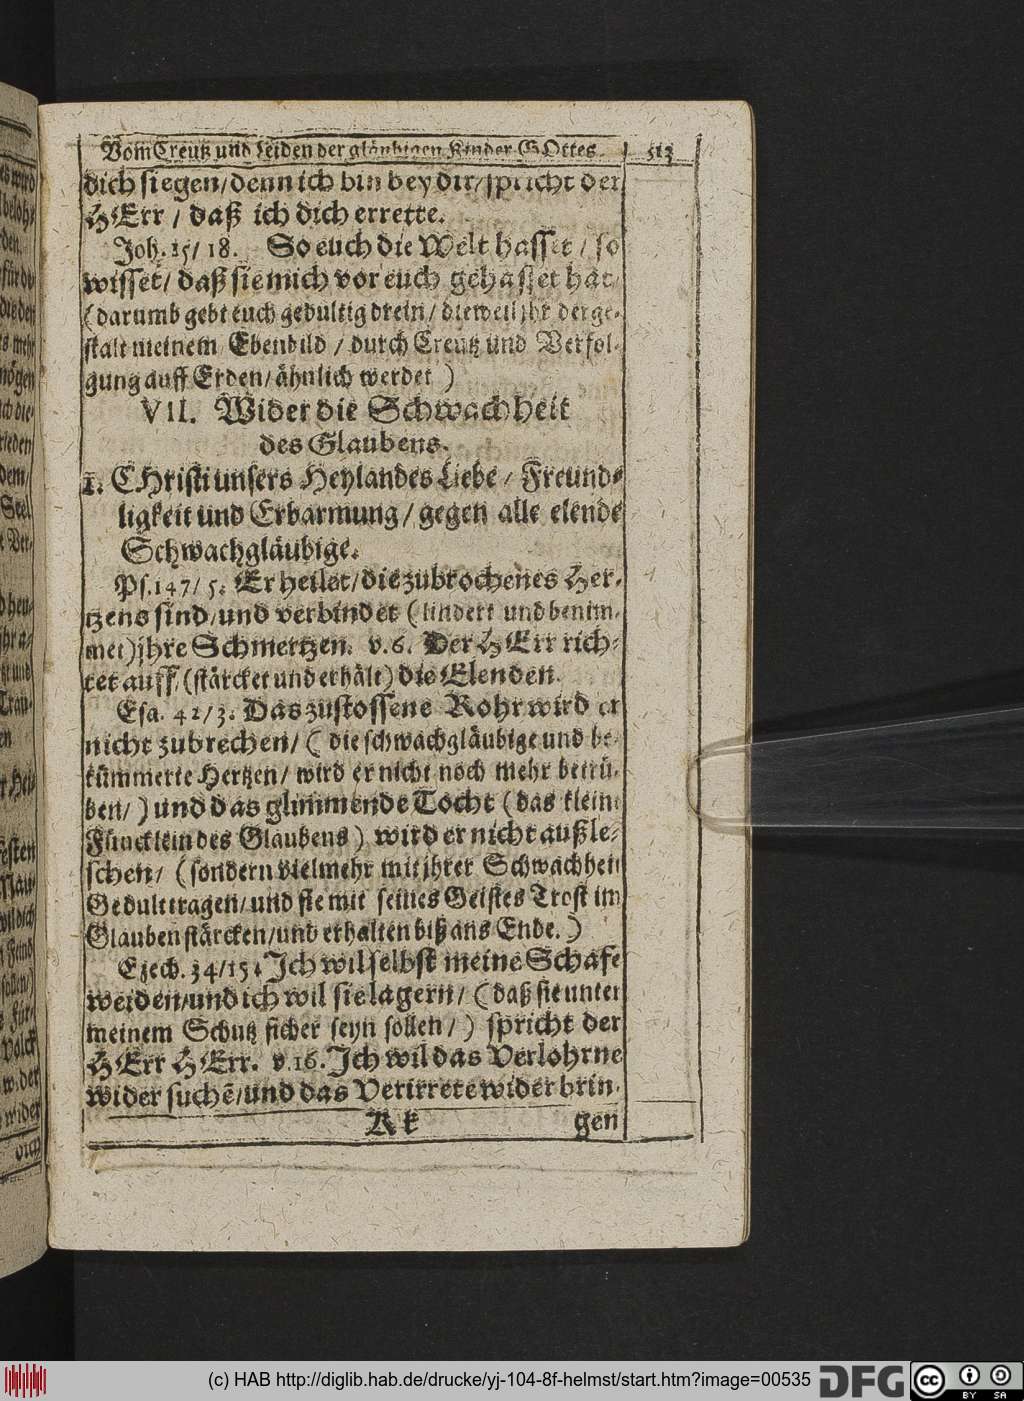 Vom Creutz und Leiden der gläubigen Kinder GOttes. 513
dich siegen/ denn ich bin bey dir/ spricht der
HErr / daß ich dich errette.
Joh. 15/ 18. So euch die Welt hasset / so
wisset/ daß sie mich vor euch gehasset hat
(darumb gebt euch gedultig drein/ dieweil jhr derge-
stalt meinem Ebenbild / durch Creutz und Verfol-
gung auff Erden/ ähnlich werdet )
VII. Wider die Schwachheit
des Glaubens.
1. CHristi unsers Heylandes Liebe / Freund-
ligkeit und Erbarmung/ gegen alle elende
Schwachgläubige.
Ps. 147/ 5. Er heilet/ die zubrochenes Her-
tzens sind/ und verbindet (lindert und benim-
met) jhre Schmertzen. v. 6. Der HErr rich-
tet auff/ (stärcket und erhält) die Elenden.
Esa. 42/ 3. Das zustossene Rohr wird er
nicht zubrechen/ ( die schwachgläubige und be-
kümmerte Hertzen/ wird er nicht noch mehr betrü-
ben/ ) und das glimmende Tocht (das kleine
Füncklein des Glaubens) wird er nicht außle-
schen/ (sondern vielmehr mit jhrer Schwachheit
Gedult tragen/ und sie mit seines Geistes Trost im
Glauben stärcken/ und erhalten biß ans Ende. )
Ezech. 34/ 15. Jch wil selbst meine Schafe
weiden/ und ich wil sie lagern/ ( daß sie unter
meinem Schutz sicher seyn sollen/ ) spricht der
HErr HErr. v. 16. Jch wil das Verlohrne
wider suchẽ/ und das Verirrete wider brin-
Kk gen
(c) HAB http://diglib.hab.de/drucke/yj-104-8f-helmst/start.htm?image=00535 DFG cc BY SA